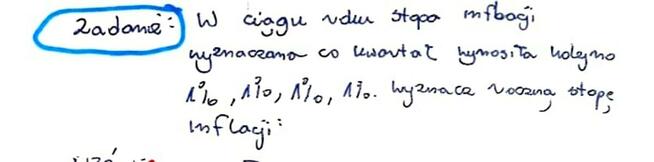 Zadanie: W ciągu roku stopa inflacji
wyznaczana co kwartał wynosiła kolejno
1%, 1%, 1%, 1%. Wyznacz roczną stopę
inflacji: